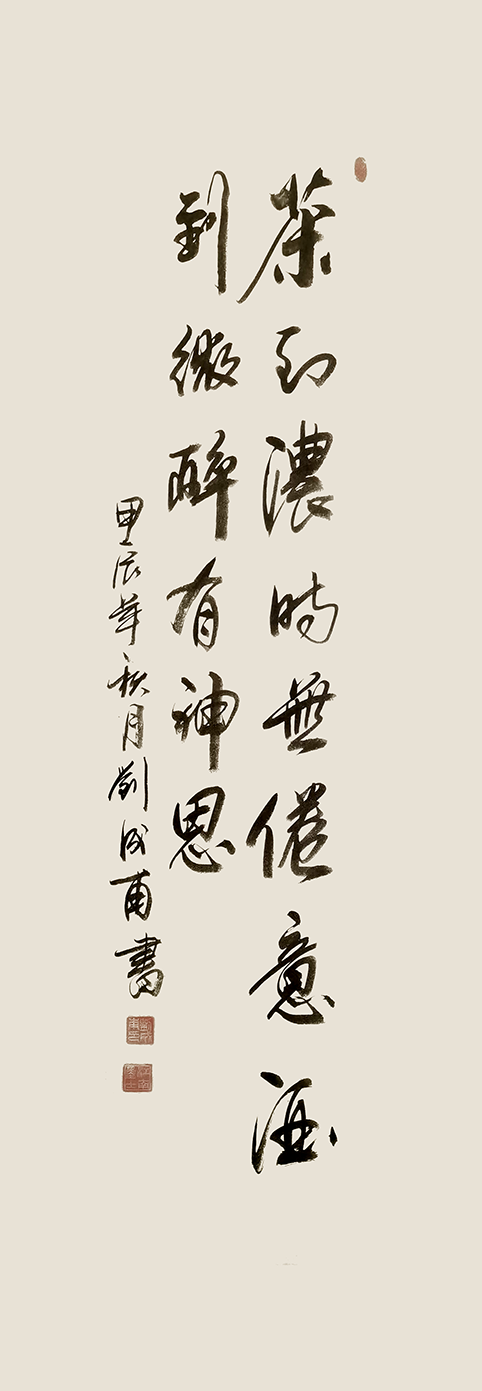 茶到濃時無倦意酒
到微醉有神思
甲辰年秋月劉成甫書